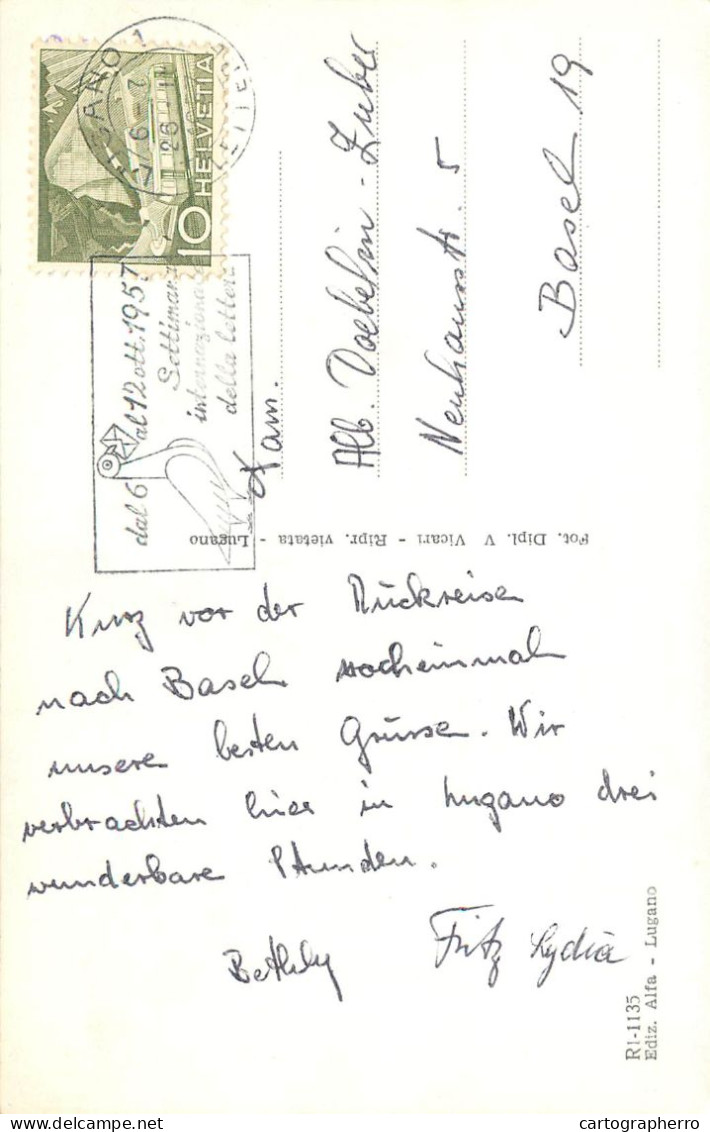 HELVETIA
10
LUGANO 1
dal 6 al 12 ott. 1957
Settimana
internazionale
della lettera
Fam.
Alb. Doebelin-Zuber
Neuhausstr. 5
Basel 19
Fot. Dipl. V Vicari - Ripr. vietata - Lugano
Kurz vor der Rückreise
nach Basel nocheinmal
unsere besten Grüsse. Wir
verbrachten hier in Lugano drei
wunderbare Stunden.
Bethly Fritz Lydia
RI-1135
Ediz. Alfa - Lugano
cartographerro